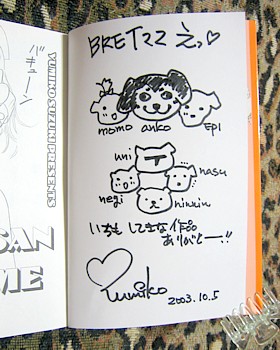 バキューン
YUMIKO SUZUKI PRESENTS
SAN
ME
BRETZZ え、♡
momo anko EPI
uni
nasu
negi
ninjin
いつも すてきな作品
ありがとー!!
Yumiko
2003.10.5